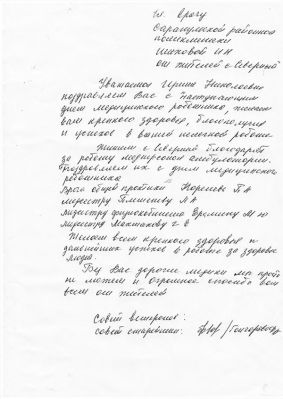 Врачу
Сарапульской районной
поликлиники
Шиховой ИН
от жителей с Северный
Уважаемая Ирина Николаевна
поздравляем Вас с наступающим
днем медицинского работника, желаем
вам крепкого здоровья, благополучия
и успехов в вашей нелегкой работе
Жители с Северный благодарят
за работу медперсонал амбулатории.
Поздравляем их с днем медицинского
работника
Врача общей практики П А
медсестру Л А
медсестру М Ю
медсестру Г В
Желаем всем крепкого здоровья и
дальнейших успехов в работе за здоровье
людей.
Без Вас дорогие медики мы прожить
не можем и огромное спасибо вам
всем от жителей
Совет ветеранов:
совет старейшин: